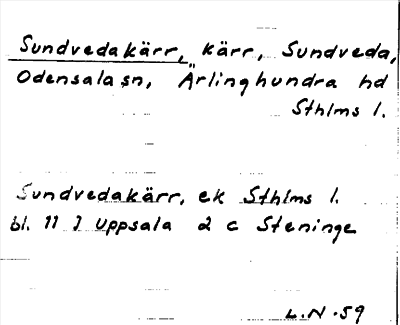 Sundvedakärr, kärr, Sundveda,
Odensala sn, Ärlinghundra hd
Sthlms l.
Sundvedakärr, ek Sthlms l.
bl. 11 I Uppsala 2 c Steninge
L.N. 59